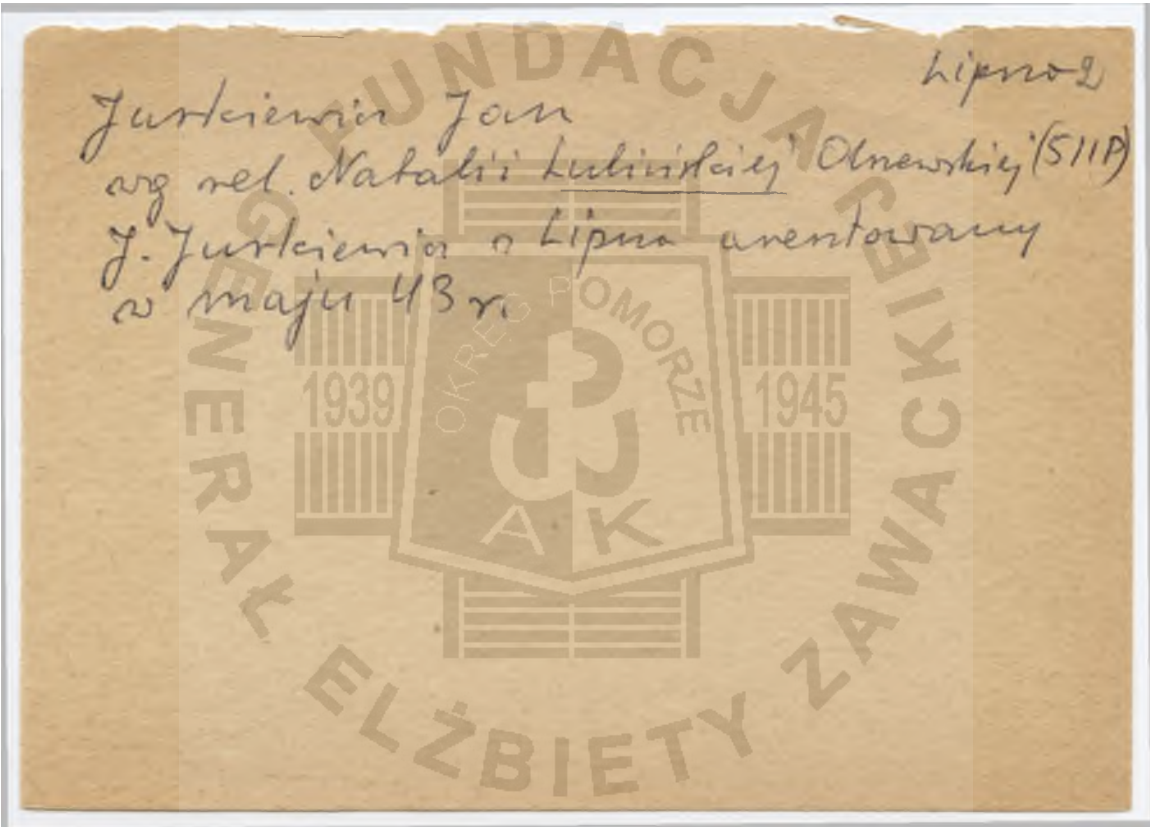 Lipno 2
Jurkiewicz Jan
wg rel. Natalii Lulińskiej Olszewskiej (511P)
J. Jurkiewicz z Lipna aresztowany
w maju 43 r.
FUNDACJA
GENERAŁ ELŻBIETY ZAWACKIEJ
OKRĘG POMORZE
1939
1945
A K